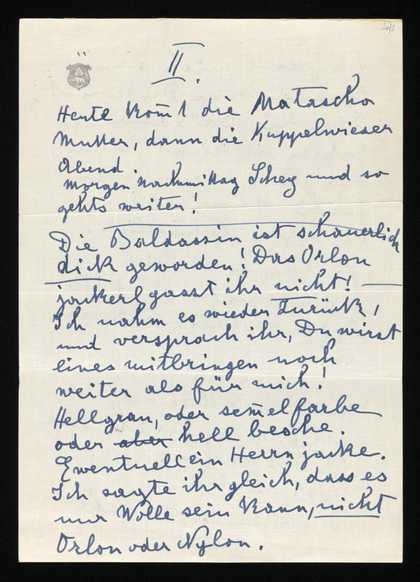 II.
Heute kom̄t die Matascho
Mutter, dann die Kuppelwieser
Abend.
Morgen nachmittag Schey und so
gehts weiter!
Die Baldassin ist schauerlich
dick geworden! Das Orlon
jankerl passt ihr nicht!
Ich nahm es wieder zurück,
und versprach ihr, Du wirst
eines mitbringen noch
weiter als für mich!
Hellgrau, oder sem̄elfarbe
oder aber hell besche.
Eventuell ein Herrnjacke.
Ich sagte ihr gleich, dass es
nur Wolle sein kann, nicht
Orlon oder Nylon.